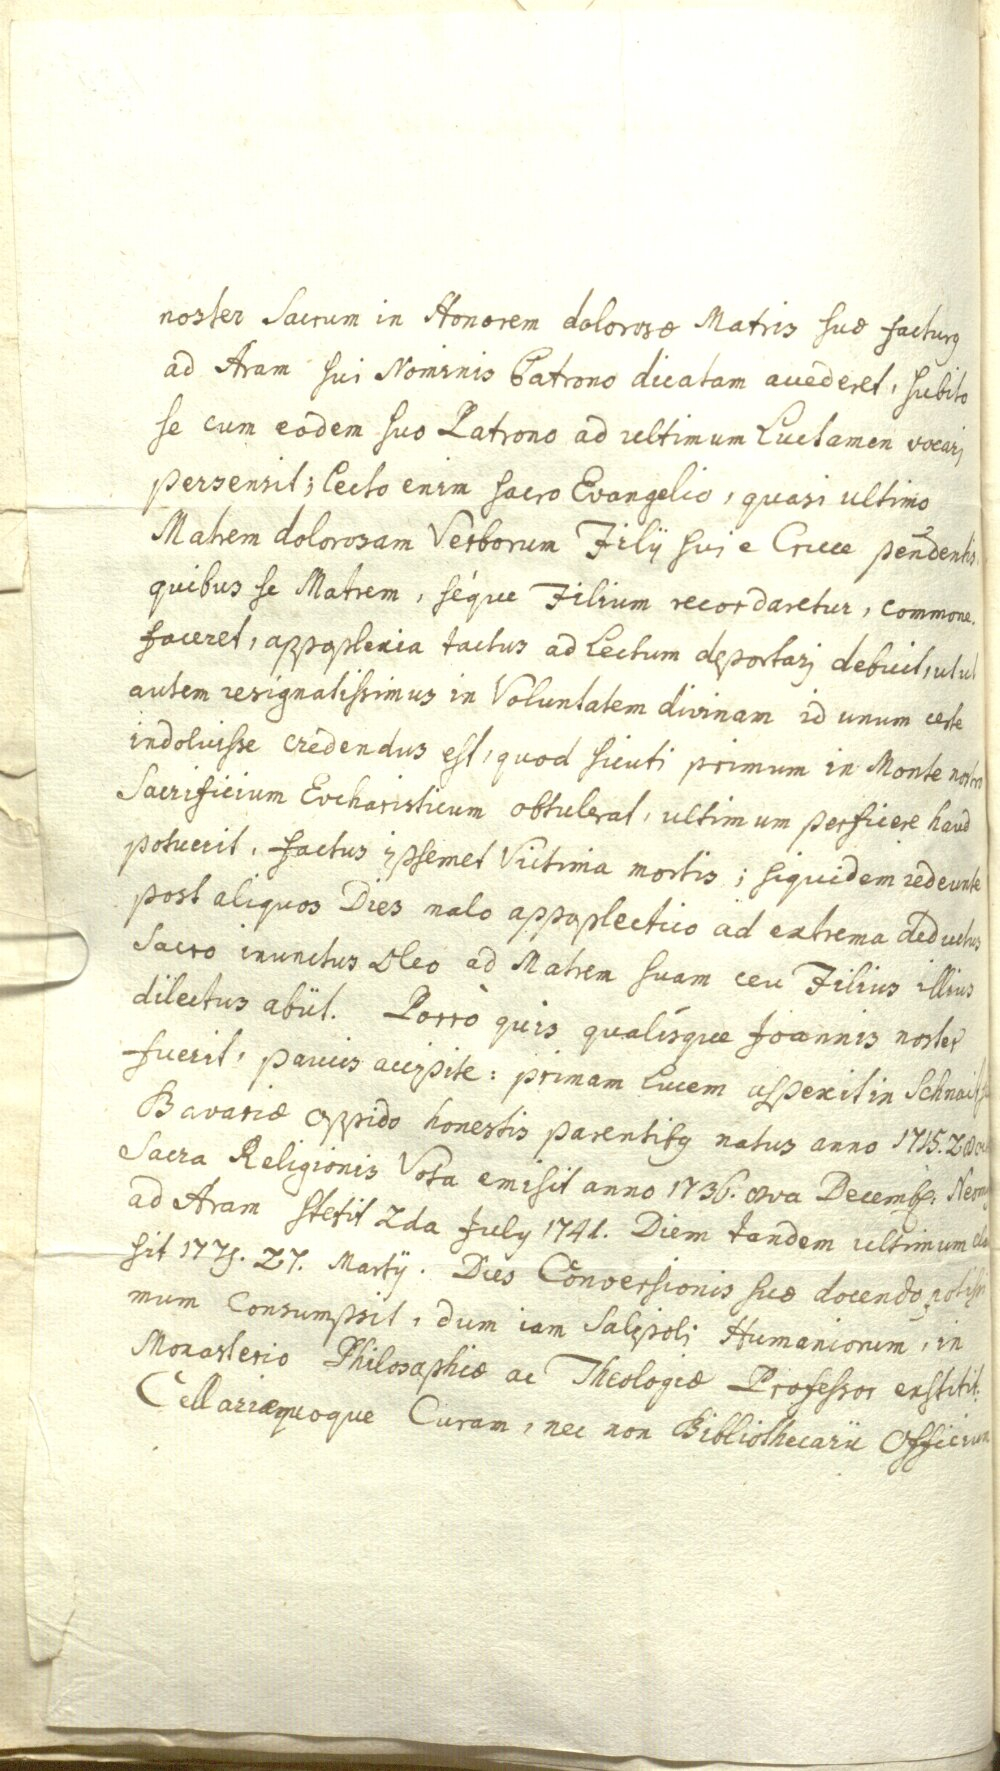 noster Sacrum in Honorem dolorosæ Matris suæ facturq
ad Aram sui Nominis Patrono dicatam accederet, subito
se cum eodem suo Patrono ad ultimum Luctamen vocarj
persensit; lecto enim sacro Evangelio, quasi ultimo
Matrem dolorosam Verborum Filÿ sui e Cruce pendentis,
quibus se Matrem, séque Filium recordaretur, commone-
faceret, appoplexia tactus ad Lectum deportarj debuit, ut ut
autem resignatissimus in Voluntatem divinam id unum certe
indoluisse credendus est, quod sicuti primum in Monte nostro
Sacrificium Eucharisticum obtulerat, ultimum perficere haud
potuerit, factus ipsemet Victima mortis; siquidem redeunte
post aliquos Dies malo appoplectico ad extrema deductus
Sacro inunctus Oleo ad Matrem suam ceu Filius illius
dilectus abiit. Porrò quis qualisque Joannis noster
fuerit, paucis accipite: primam Lucem aspexit in
Bavariæ oppido honestis parentibq natus anno 1715.
Sacra Religionis Vota emisit anno 1736. 8va Decemb.
ad Aram stetit 2da July 1741. Diem tandem ultimum
sit 1775. 27. Martÿ. Dies Conversionis suæ docendo potissi
mum consumpsit, dum iam Salispoli Humaniorum, in
Monasterio Philosophiæ ac Theologiæ Professor exstitit.
Cellariæ quoque Curam, nec non Bibliothecarii Officium